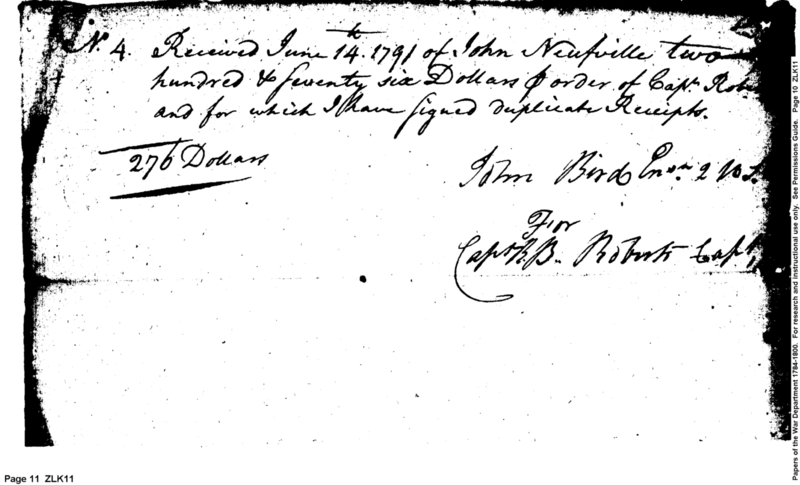 No. 4. Received June 14th. 1791 of John Neufville two
hundred & seventy six Dollars ⅌ order of Capt. Robe
and for which I have signed duplicate Receipts.
276 Dollars
John Bird Ensn. 2
For
Capt. R B. Roberts Capt.
Page 11 ZLK11
Papers of the War Department 1784-1800. For research and instructional use only. See Permissions Guide. Page 10 ZLK11